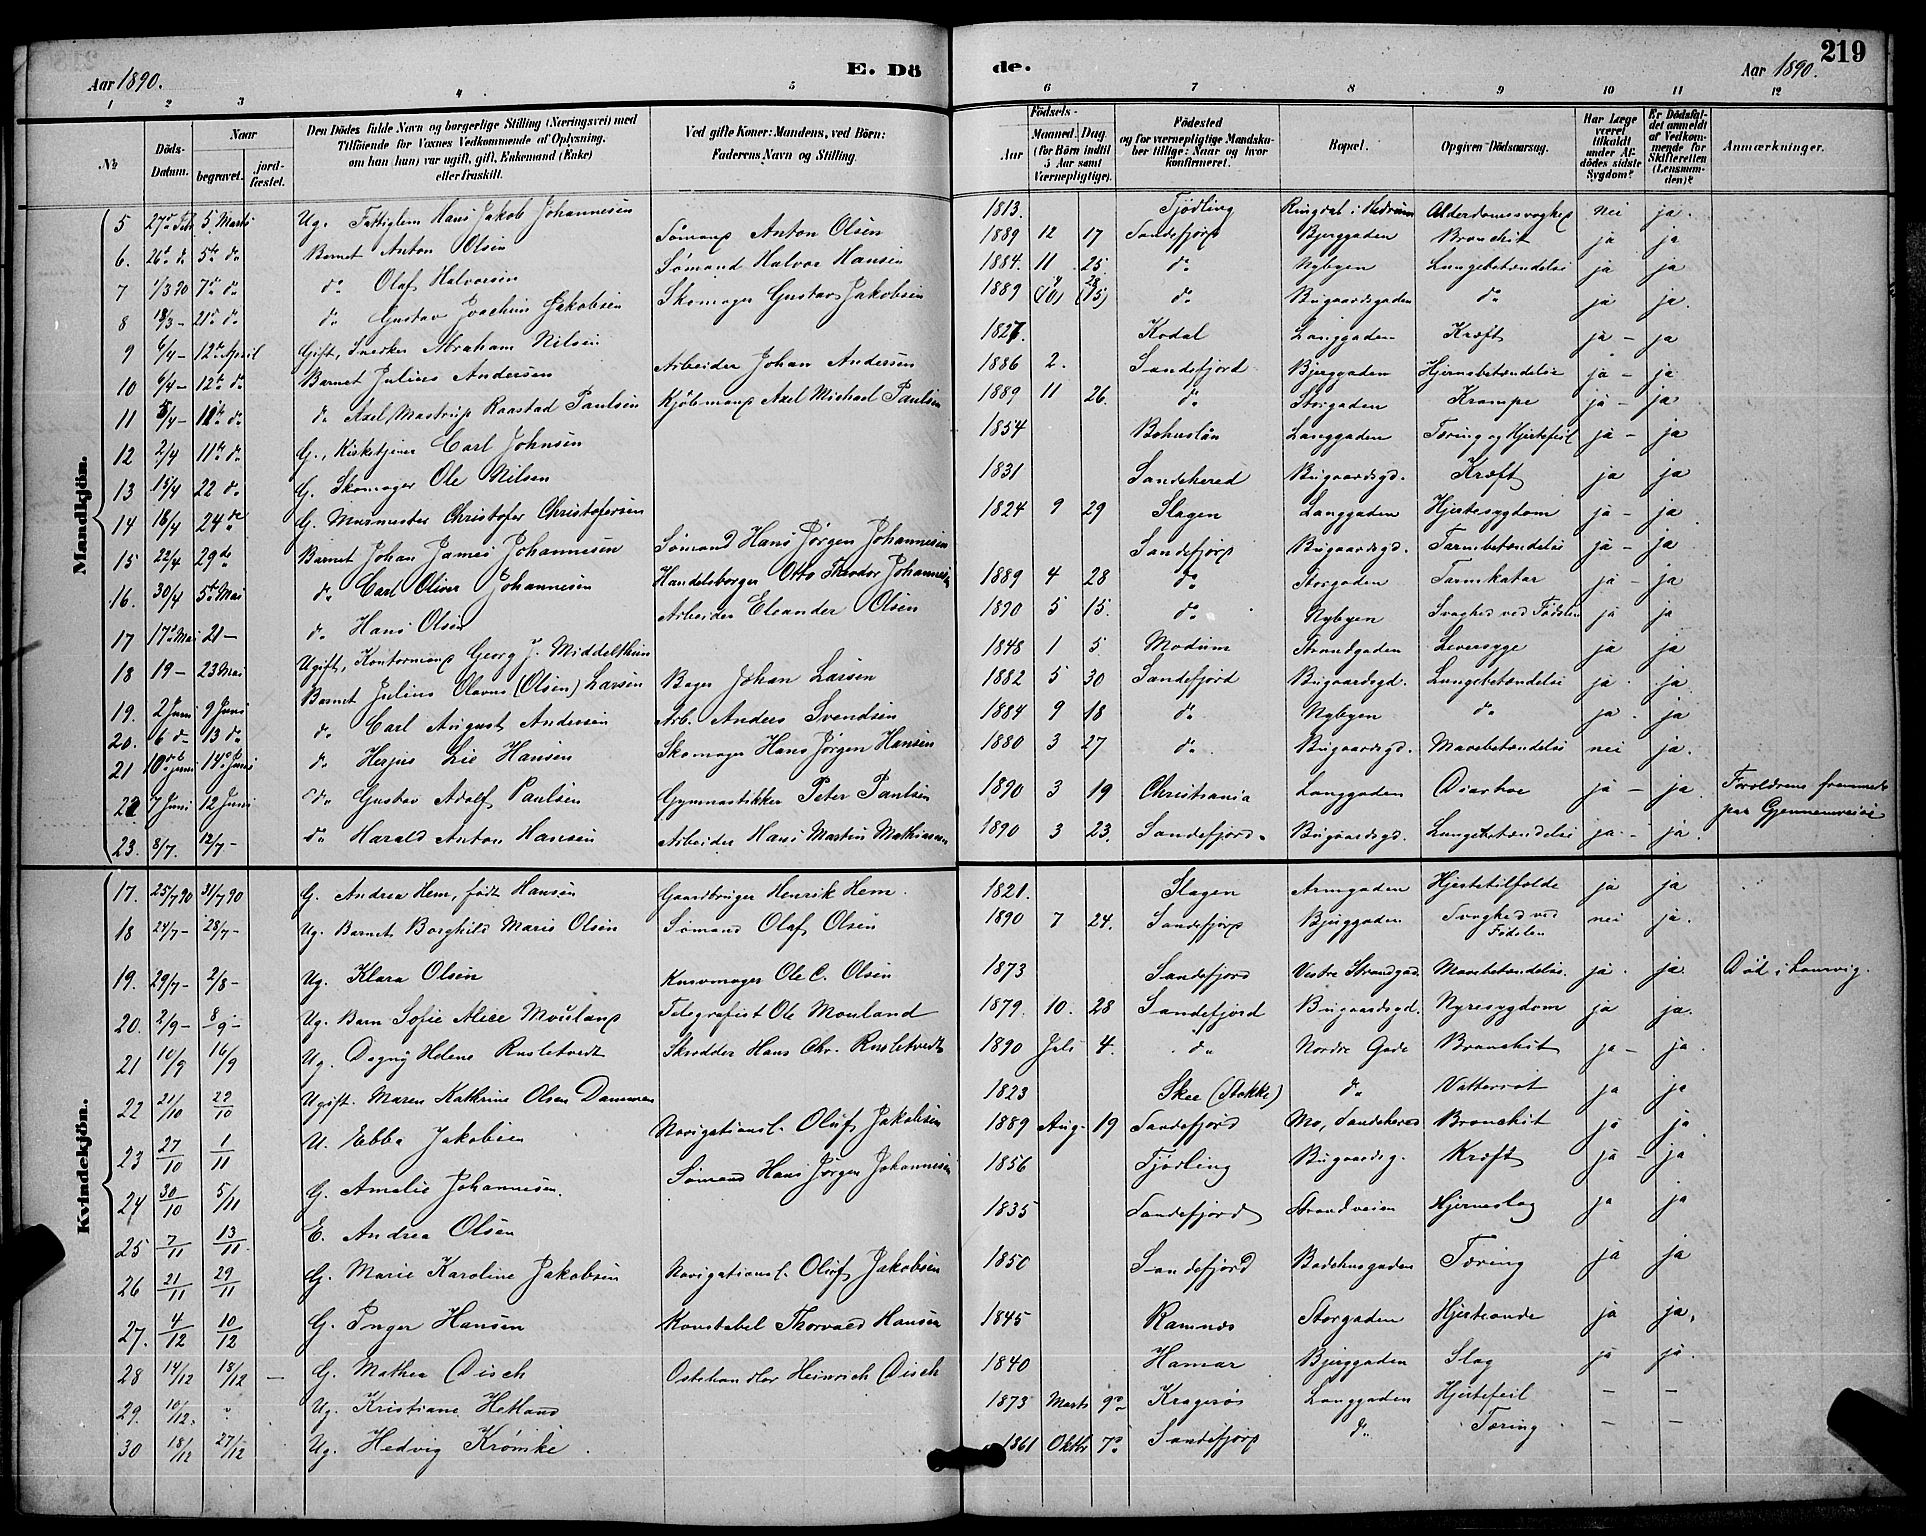 219
Aar 1890. E. Dö de. Aar 1890.
1 2 3 4 5 6 7 8 9 10 11 12
№
Döds-Datum.
Naar begravet. jord-fæstet.
Den Dödes fulde Navn og borgerlige Stilling (Næringsvei) med Tilföiende for Voxnes Vedkommende af Oplysning, om han (hun) var ugift, gift, Enkemand (Enke) eller fraskilt.
Ved gifte Koner: Mandens, ved Börn: Faderens Navn og Stilling.
Födsels-
Aar
Maaned. Dag. (for Börn indtil 5 Aar samt Værnepligtige).
Födested og for værnepligtige Mandskaber tillige: Naar og hvor Konfirmeret.
Bopæl.
Opgiven Dödsaarsag.
Har Læge været tilkaldt under Afdödes sidste Sygdom?
Er Dödsfaldet anmeldt af Vedkommende for Skifteretten (Lensmanden)?
Anmærkninger.
Mandkjön.
5 27de Feb 5 Marts Ug. Fattiglem Hans Jakob Johannesen 1813. Tjödling Ringdal i Hedrum Alderdomssvaghed nei ja.
6. 26de do 5te do Barnet Anton Olsen Sömand Anton Olsen 1889 12 17 Sandefjord Bjerggaden Bronchit ja ja
7 1/3 90 7de do do Olaf Halvorsen Sømand Halvor Hansen 1884. 11 25. do Nybyen Lungebetændelse ja ja
8 18/3 - 21de do do Gustav Joachim Jakobsen Skomager Gustav Jakobsen 1889 (10) (15) do Bugaardsgaden do ja ja.
9 6/4 - 12te April Gift, Snedker Abraham Nilsen 1827. Kodal Langgaden Kræft ja - ja
10 6/4 - 12te do Barnet Julius Andersen Arbeider Johan Andersen 1886 2. Sandefjord Bjerggaden Hjernebetændelse ja - ja
11 5/4 - 11te do do Axel Mastrup Raastad Paulsen Kjøbmand Axel Michael Paulsen 1889 11 26. do Storgaden Krampe ja - ja
12 2/4 11te do G., Kirketjener Carl Johnsen 1854 Bohuslän Langgaden Tæring og Hjertefeil ja - ja
13 15/4 22 do G. Skomager Ole Nilsen 1831 Sandehered Bugaardsgd. Kræft ja ja
14 18/4 24de G. Murmester Christofer Christofersen 1824 9 29 Slagen Langgaden Hjertesygdom ja - ja
15 22/4 29de Barnet Johan James Johannesen Sömand Hans Jørgen Johannesen Sandefjord Bugaardsgd. Tarmbetændelse ja - ja
16. 30/4 5te Mai do Carl Oliver Johannesen Handelsborger Otto Theodor Johannesen 1889 4 28 do Storgaden Tarmkatar ja - ja
17 17de Mai 21 - do Hans Olsen Arbeider Eleander Olsen 1890 5 15. do Nybyen Svaghed ved Fødslen ja ja
18 19 - 23 Mai Ugift, Kontormand Georg J. Middelthun 1848 1 5 Modum Strandgaden Leversyge ja ja
19. 2 Juni 9 Juni Barnet Julius Olavus (Olsen) Larsen Bager Johan Larsen 1882 5 30 Sandefjord Bugaardsgd. Lungebetændelse ja ja.
20. 6 do 13 do do Carl August Andersen Arb. Anders Svendsen 1884 9 18 do Nybyen do ja ja
21 10de Juni 14de Juni do Herjus Lie Hansen Skomager Hans Jørgen Hansen 1880 3 27 do Bugaardsgd. Mavebetændelse nei ja.
22 7 Juni 12 Juni do Gustav Adolf Paulsen Gymnastikker Peter Paulsen 1890 3 19 Christiania Langgaden Diarhoe ja - ja Forældrene fremmede paa Gjennemreise
23. 8/7. 12/7 - do Harald Anton Hansen Arbeider Hans Martin Mathiasen 1890 3 23. Sandefjord. Bugaardsgd. Lungebetændelse ja - ja.
Kvindekjön.
17. 25/7 90 31/7 90 G. Andrea Hem, født Hansen Gaardbruger Henrik Hem. 1821. Slagen Armgaden Hjertetilfælde ja ja
18 24/7 - 28/7 - Ug. Barnet Borghild Marie Olsen Sömand Olaf Olsen 1890 7 24. Sandefjord Bjerggaden Svaghed ved Fødslen nei ja.
19. 29/7 - 2/8 - Ug. Klara Olsen Kurvmager Ole C. Olsen 1873 Sandefjord Vestre Strandgad. Mavebetændelse. ja. ja Död i Laurvig.
20. 2/9 - 8/9 - Ug. Barn Sofie Alice Mouland Telegrafist Ole Mouland 1879. 10. 28 Sandefjord Bugaardsgd. Nyresygdom ja ja.
21 10/9 16/9 Ug. Dagny Helene Rusletvedt Skrædder Hans Chr. Rusletvedt 1890 Juli 4. do Nordre Gade Bronchit ja - ja
22 21/10 22/10 Ugift. Maren Kathrine Olsen Dammen 1823 Skee (Stokke) do Vattersot ja ja
23 27/10 1/11 U. Ebba Jakobsen Navigationsl. Oluf Jakobsen 1889 Aug. 19 Sandefjord Mo, Sandehered Bronchit ja ja
24 30/10 5/11 G. Amalie Johannesen. Sømand Hans Jørgen Johannesen 1856 Tjödling Bugaardsg. Kræft ja - ja
25 7/11 13/11 E. Andrea Olsen 1835 Sandefjord Strandveien Hjerneslag ja ja
26 21/11 29/11 G. Marie Karoline Jakobsen Navigationsl. Oluf Jakobsen 1850 Sandefjord Badehusgaden Tæring ja ja
27. 4/12 10/12 G. Inger Hansen Konstabel Thorvald Hansen 1845 Ramnæs Storgaden Hjerteonde ja ja,
28 14/12 18/12 - G. Mathea Disch Ostehandler Heinrich Disch 1840 Hamar Bjerggaden Slag ja ja.
29. 10/12. " Ug. Kristiane Hetland 1873 Marts 9de Kragerøs Langgaden Hjertefeil - -
30 18/12 27/12 Ug. Hedvig Krömke 1861 Oktbr 7de Sandefjord do Tæring - -